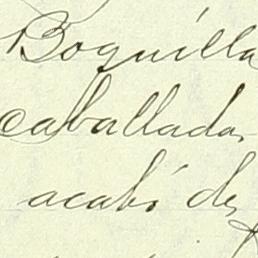 Boquilla
caballada
acabó de